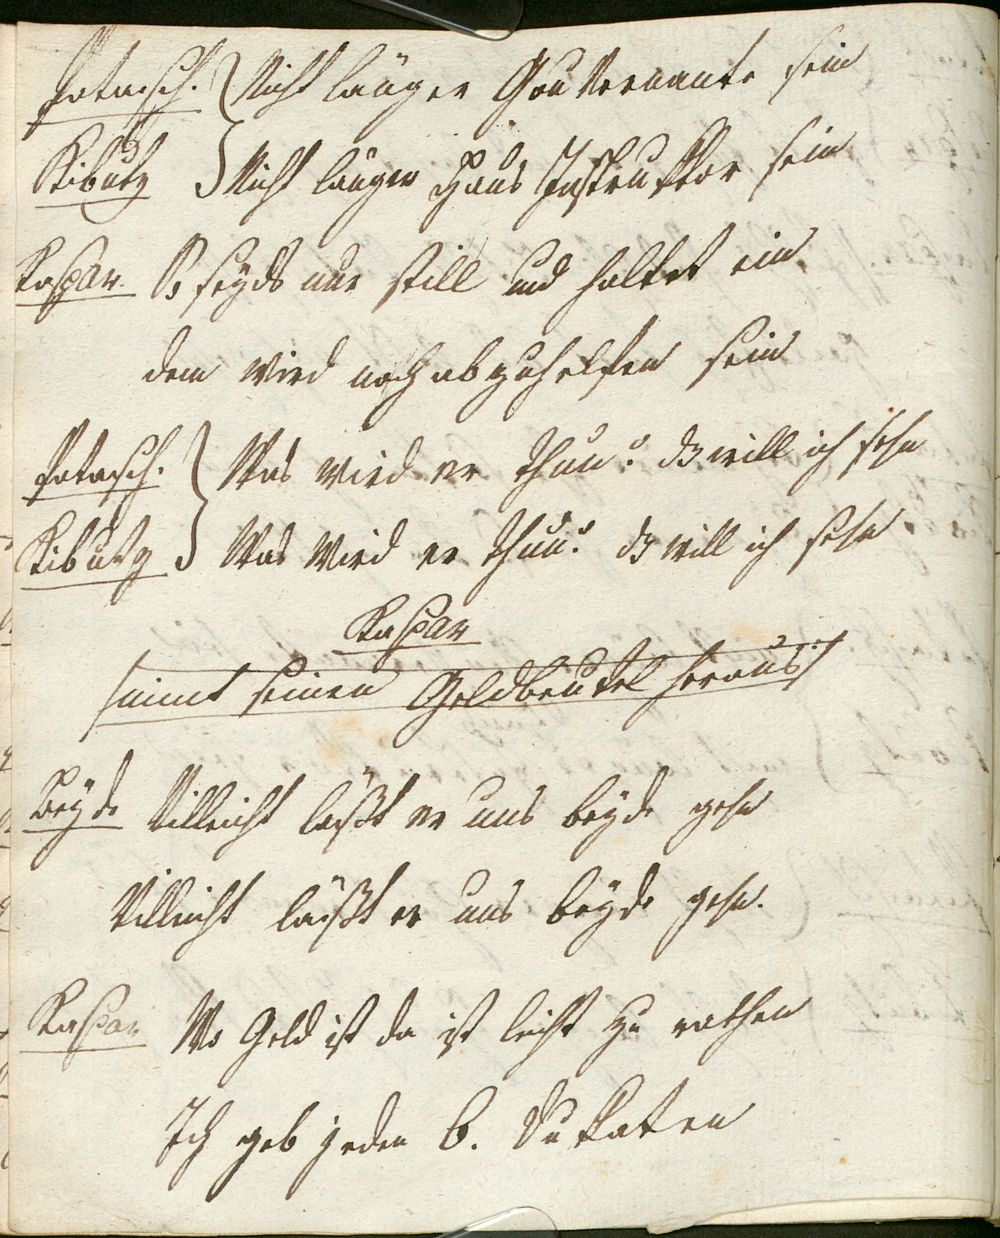 Potasch. Nicht länger Gouvernante sein
Kibutz Nicht länger Haus Instruktor sein
Kaspar. O seyds nur still und haltet ein
dem wird noch abzuhelfen sein
Potasch. Was wird er thun? dz will ich sehn
Kibutz Was wird er thun? dz will ich sehn
Kaspar
nimt seinen Geldbeutel heraus
Beyde Villeicht läßt er uns beyde gehn
Villeicht läßt er uns beyde gehn.
Kaspar Wo Geld ist da ist leicht zu rathen
Ich geb jeden 6. Dukaten